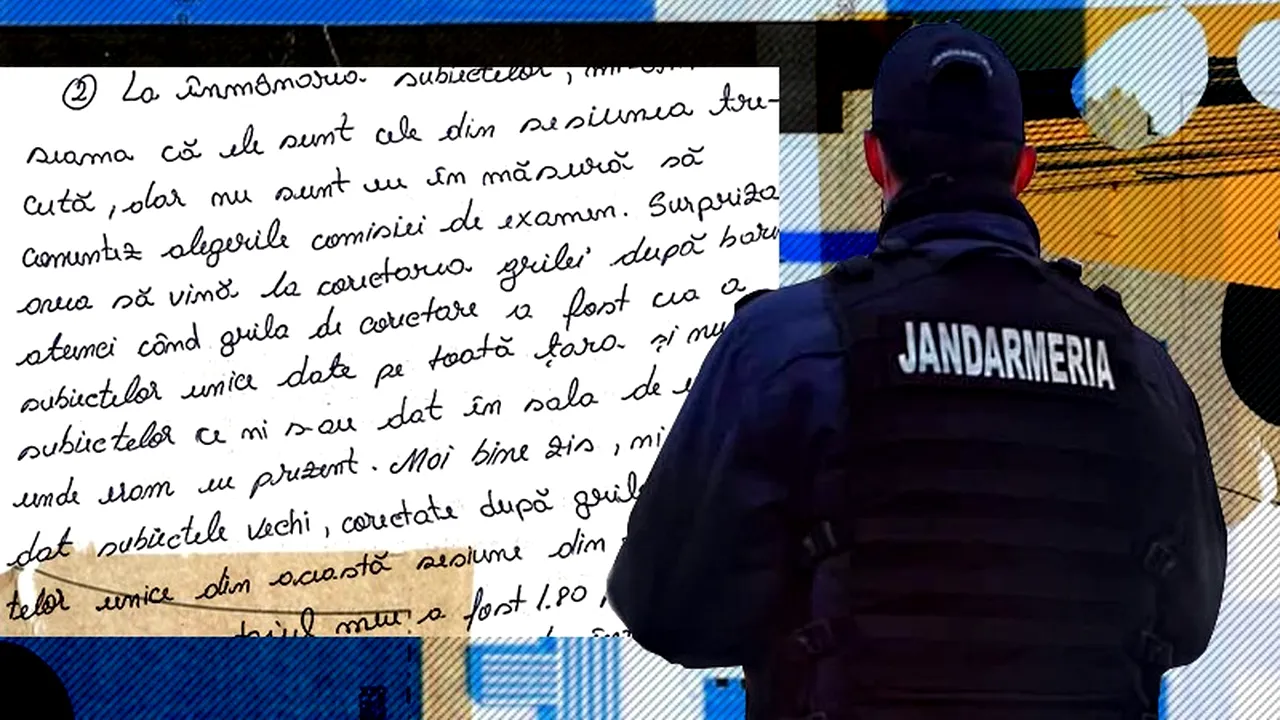 ② La înmânarea subiectelor,
seama că ele sunt cele din sesiunea tre-
cută, dar nu sunt eu în măsură să
comentez alegerile comisiei de examen. Surpriza
avea să vină la corectarea grilei după
atunci când grila de corectare a fost cea a
subiectelor unice date pe toată țara și nu
subiectelor ce ni s-au dat în sala de
unde eram eu prezent. Mai bine zis,
dat subiectele vechi, corectate după
telor unice din această sesiune din
meu a fost 1.80,
JANDARMERIA
JANDARMERIA